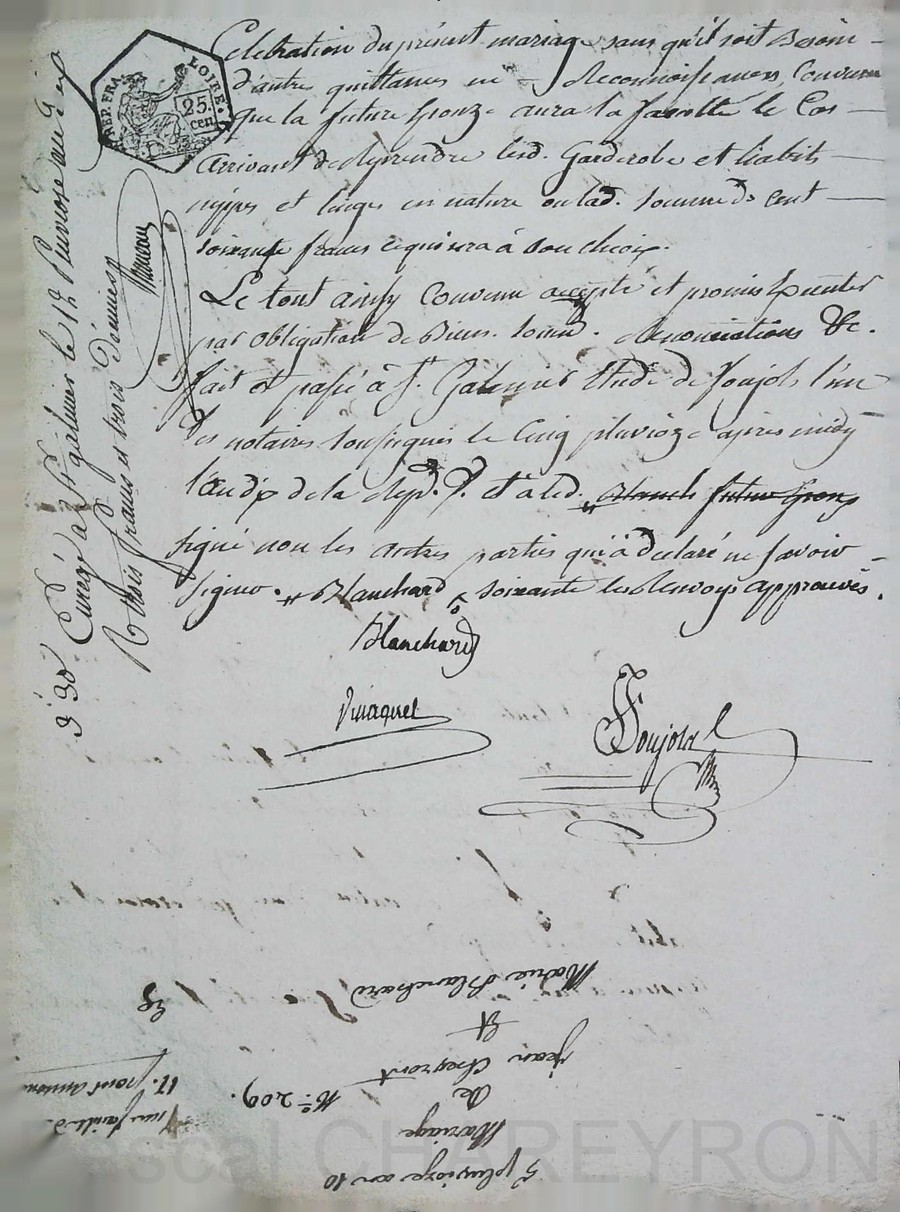 Celebration du présent mariage sans qu'il soit Besoin
d'autres quittances ni Reconnoissances Convenu
que la future Epouze aura la facolté le Cas
arrivant de Reprendre lesd. Garderobe et habits
nippes et linges en nature ou lad. somme de cent
soixante francs ce qui sera à son choix.
Le tout ainsy Convenu accepté et promis
par obligation de Biens. Renonciations &c.
fait et passé à St. Galmier Etude de Soujols l'un
des notaires soussignés le Cinq pluvioze après midy
l'an dix de la Rep. f. et a led. Blanch futur Epoux
signé non les autres parties qui a declaré ne savoir
signer. # Blanchard soixante les Renvoys approuvés.
Blanchard
Vinagnet
Soujols
REP. FRA.
LOIRE.
25.
cen.
Enreg. à St galmier le 17 Pluviose an dix
R trois francs et trois decimes
Moreau
5 pluvioze an 10
Mariage
de
jean Cheyront
Et
Marie Blanchard
No. 209.
Pascal CHAREYRON